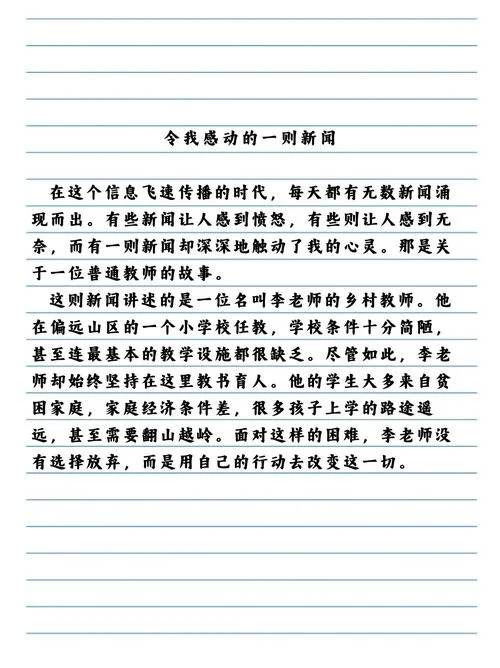 令我感动的一则新闻
在这个信息飞速传播的时代，每天都有无数新闻涌
现而出。有些新闻让人感到愤怒，有些则让人感到无
奈，而有一则新闻却深深地触动了我的心灵。那是关
于一位普通教师的故事。
这则新闻讲述的是一位名叫李老师的乡村教师。他
在偏远山区的一个小学校任教，学校条件十分简陋，
甚至连最基本的教学设施都很缺乏。尽管如此，李老
师却始终坚持在这里教书育人。他的学生大多来自贫
困家庭，家庭经济条件差，很多孩子上学的路途遥
远，甚至需要翻山越岭。面对这样的困难，李老师没
有选择放弃，而是用自己的行动去改变这一切。